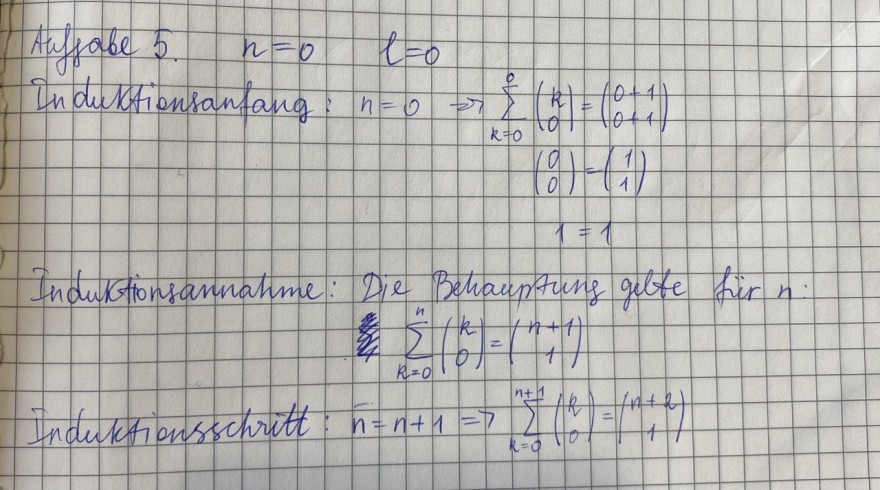 Aufgabe 5. n=0 l=0
Induktionsanfang: n=0 => \sum_{k=0}^{0} \binom{k}{0} = \binom{0+1}{0+1}
\binom{0}{0} = \binom{1}{1}
1 = 1
Induktionsannahme: Die Behauptung gelte für n:
\sum_{k=0}^{n} \binom{k}{0} = \binom{n+1}{1}
Induktionsschritt: n=n+1 => \sum_{k=0}^{n+1} \binom{k}{0} = \binom{n+2}{1}